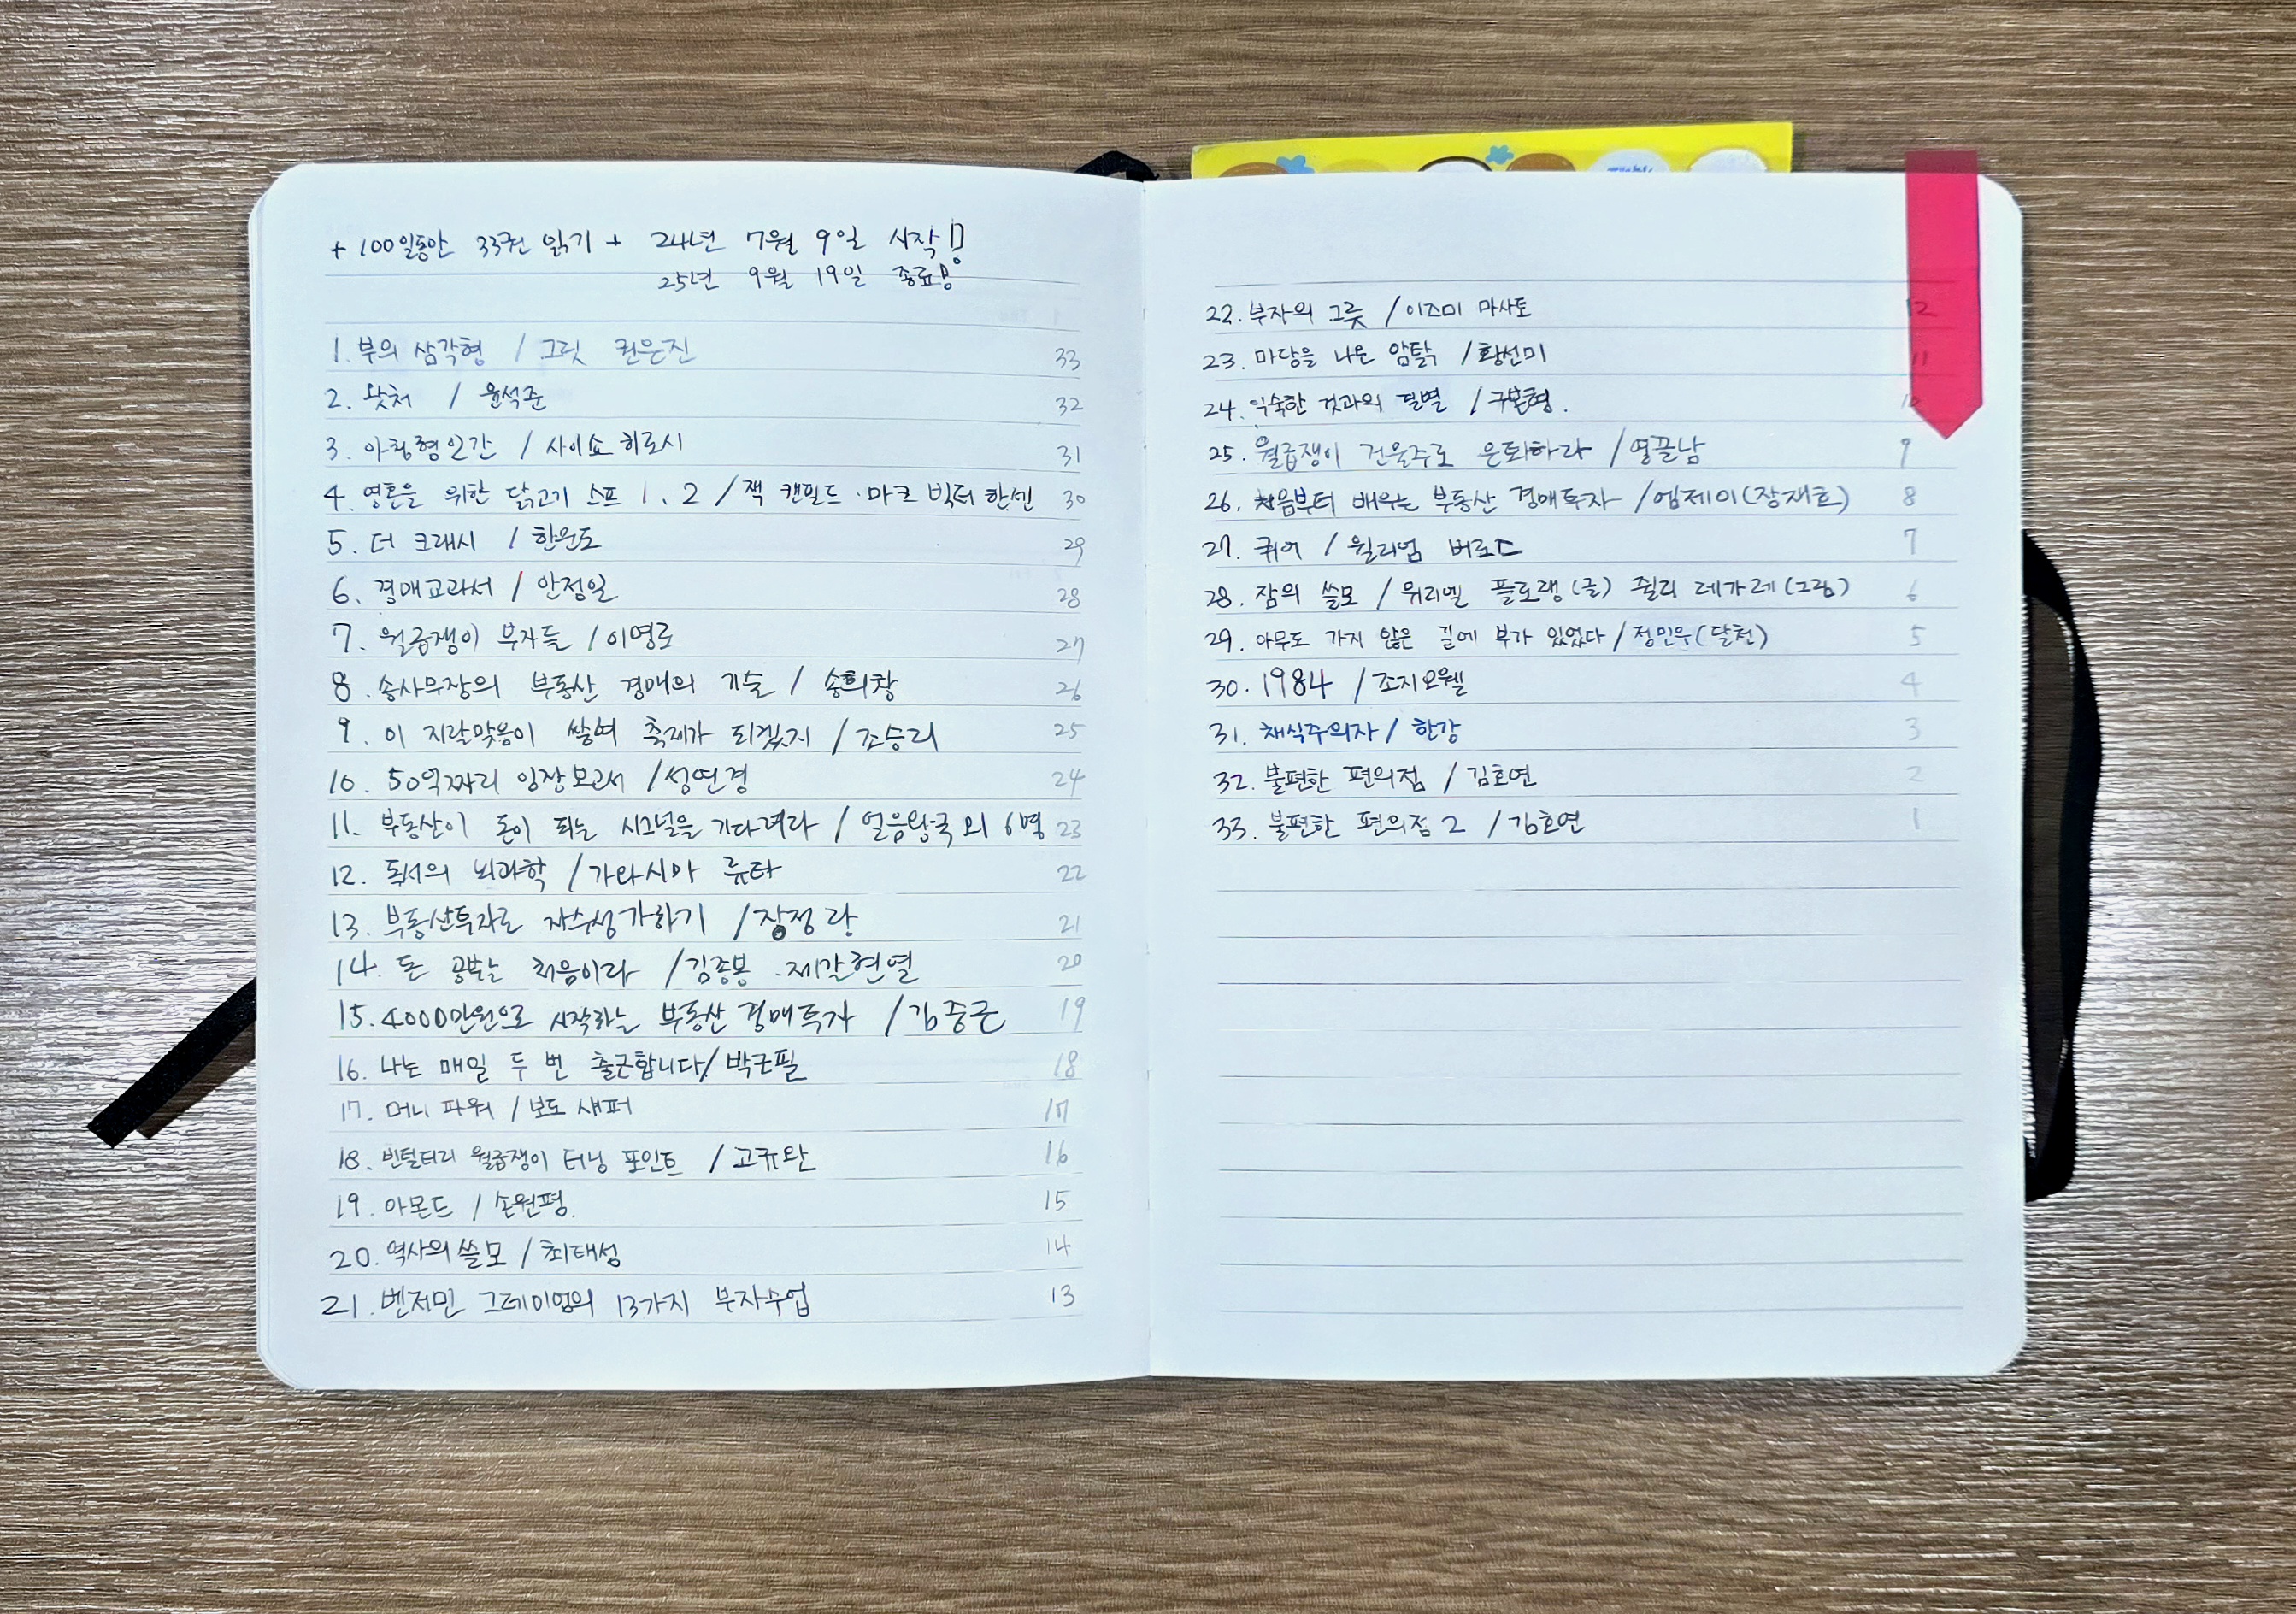 + 100일동안 33권 읽기 + 24년 7월 9일 시작!
25년 9월 19일 종료!
1. 부의 삼각형 / 그릿 권은진 33
2. 왓처 / 윤석준 32
3. 아침형인간 / 사이쇼 히로시 31
4. 영혼을 위한 닭고기 스프 1, 2 / 잭 캔필드 · 마크 빅터 한센 30
5. 더 크래시 / 한문도 29
6. 경매교과서 / 안정일 28
7. 월급쟁이 부자들 / 이명로 27
8. 송사무장의 부동산 경매의 기술 / 송희창 26
9. 이 지랄맞음이 쌓여 축제가 되겠지 / 조승리 25
10. 50억짜리 임장보고서 / 성연경 24
11. 부동산이 돈이 되는 시그널을 기다려라 / 얼음왕국 외 6명 23
12. 독서의 뇌과학 / 가와시마 류타 22
13. 부동산투자로 자수성가하기 / 장정랑 21
14. 돈 공부는 처음이라 / 김종봉 · 제갈현열 20
15. 4000만원으로 시작하는 부동산 경매투자 / 김중근 19
16. 나는 매일 두 번 출근합니다 / 박근필 18
17. 머니 파워 / 보도 섀퍼 17
18. 빈털터리 월급쟁이 터닝 포인트 / 고규완 16
19. 아몬드 / 손원평. 15
20. 역사의 쓸모 / 최태성 14
21. 벤저민 그레이엄의 13가지 부자수업 13
22. 부자의 그릇 / 이즈미 마사토 12
23. 마당을 나온 암탉 / 황선미 11
24. 익숙한 것과의 결별 / 구본형. 10
25. 월급쟁이 건물주로 은퇴하라 / 영끌남 9
26. 처음부터 배우는 부동산 경매투자 / 엠제이(장재호) 8
27. 퀴어 / 윌리엄 버로스 7
28. 잠의 쓸모 / 뮈리엘 플로랭(글) 쥘리 레가레(그림) 6
29. 아무도 가지 않은 길에 부가 있었다 / 정민우(달천) 5
30. 1984 / 조지오웰 4
31. 채식주의자 / 한강 3
32. 불편한 편의점 / 김호연 2
33. 불편한 편의점 2 / 김호연 1